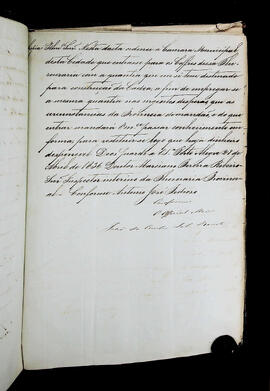 Illmo Snr. Nesta data ordeno a Camara Municipal
desta Cidade que entre para os Cofres dessa The-
souraria com a quantia que existe destinada
para construcção da Cadea, a fim de empregar-se
a mesma quantia nas urgentes despezas que as
circunstancias da Provincia demandão, e do que
entrar mandará Vmce passar conhecimento em
forma, para restituir-se logo que haja dinheiro
disponivel. Deos guarde a Vmce Porto Alegre 21 de
Abril de 1836. Doutor Marciano Pereira Ribeiro
Snr. Inspector interino da Thesouraria Provin-
cial - Conforme Antonio José
Conforme
O Official Maior
João da Cunha